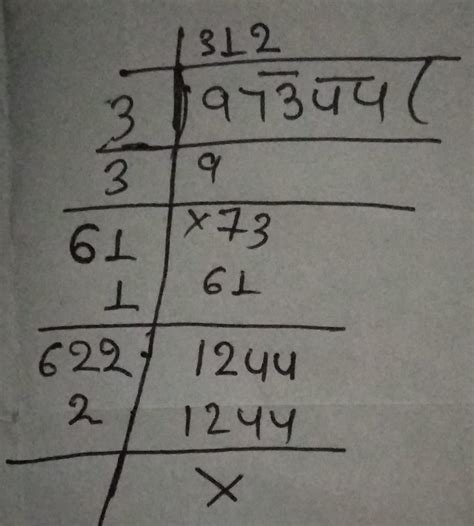 312
3 97344(
3 9
61 ×73
1 61
622 1244
2 1244
×